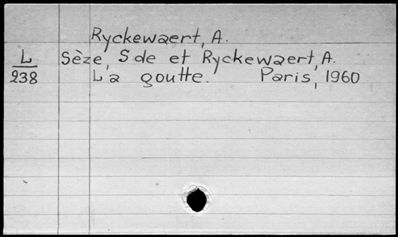 Ryckewaert, A.
L Sèze, S de et Ryckewaert, A.
238 La goutte. Paris, 1960